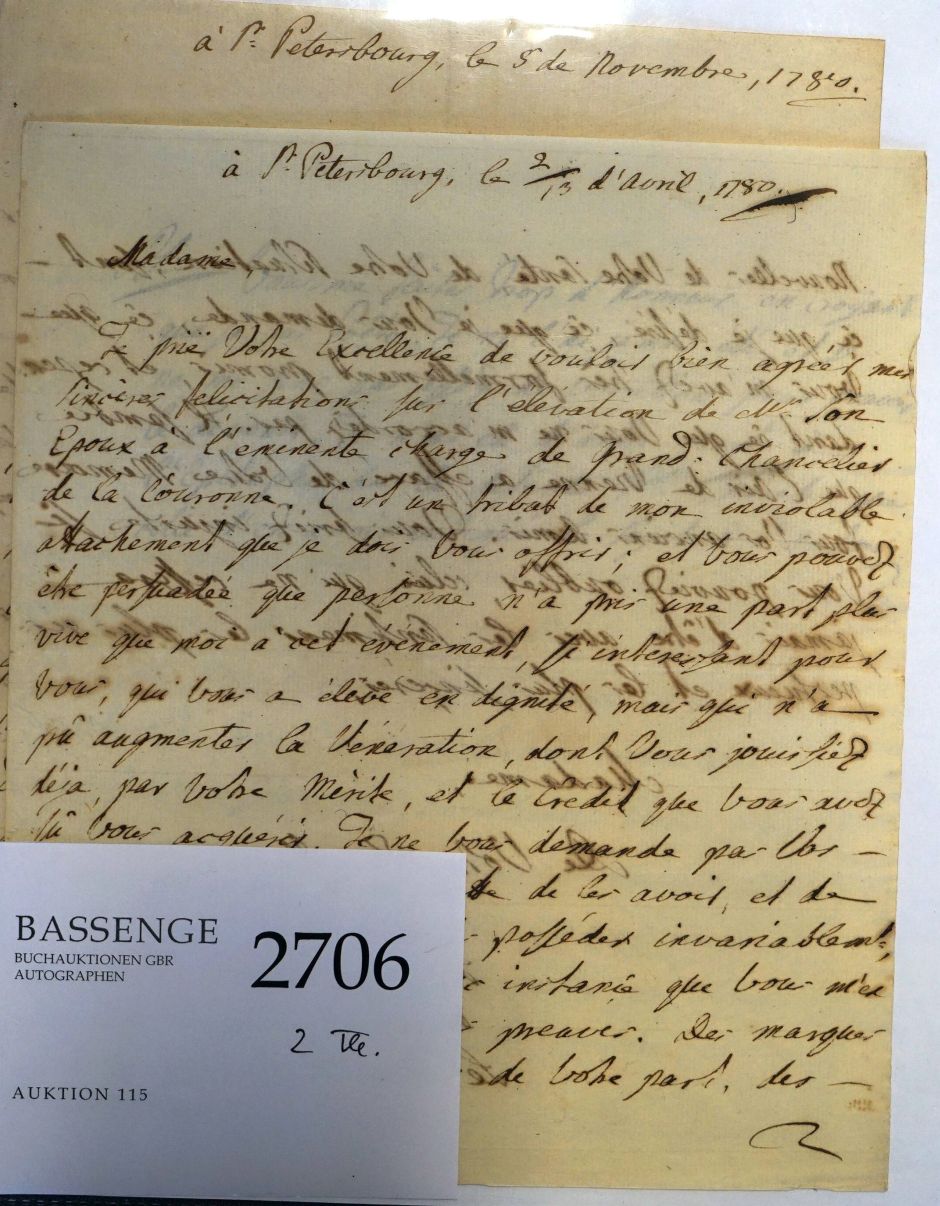 à St. Petersbourg, le 5 de Novembre, 1780.
à St. Petersbourg, le 2/13 d'Avril, 1780.
Madame
Je prie Votre Excellence de vouloir bien agréer mes
sinceres felicitations sur l'elevation de Mr. Son
Epoux à l'eminente charge de Grand-Chancelier
de la Couronne. C'est un tribut de mon inviolable
attachement que je dois Vous offrir; et Vous pouvez
être persuadée que personne n'a pris une part plus
vive que moi a cet evénement, si interessant pour
Vous, qui Vous a élevé en dignité, mais qui n'a
pû augmenter la Véneration, dont Vous jouissiez
déja par Votre Mérite, et le Credit que Vous avez
sû Vous acquérir. Je ne Vous demande pas Vos —
de les avoir, et de
posséder invariablemt,
instance que Vous m'en
preuves. Des marques
de Votre part, des —
BASSENGE
BUCHAUKTIONEN GBR
AUTOGRAPHEN
2706
2 Tle.
AUKTION 115